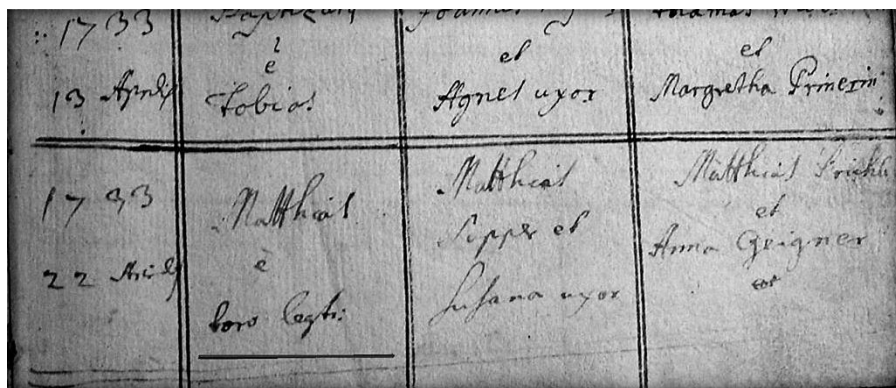 1733
13 Aprilis
e
Tobias
et
Agnes uxor
et
Margretha Prinerin
1733
22 Aprilis
Matthias
e
toro legti:
Matthias
Popper et
Susana uxor
Matthias
et
Anna Geigner